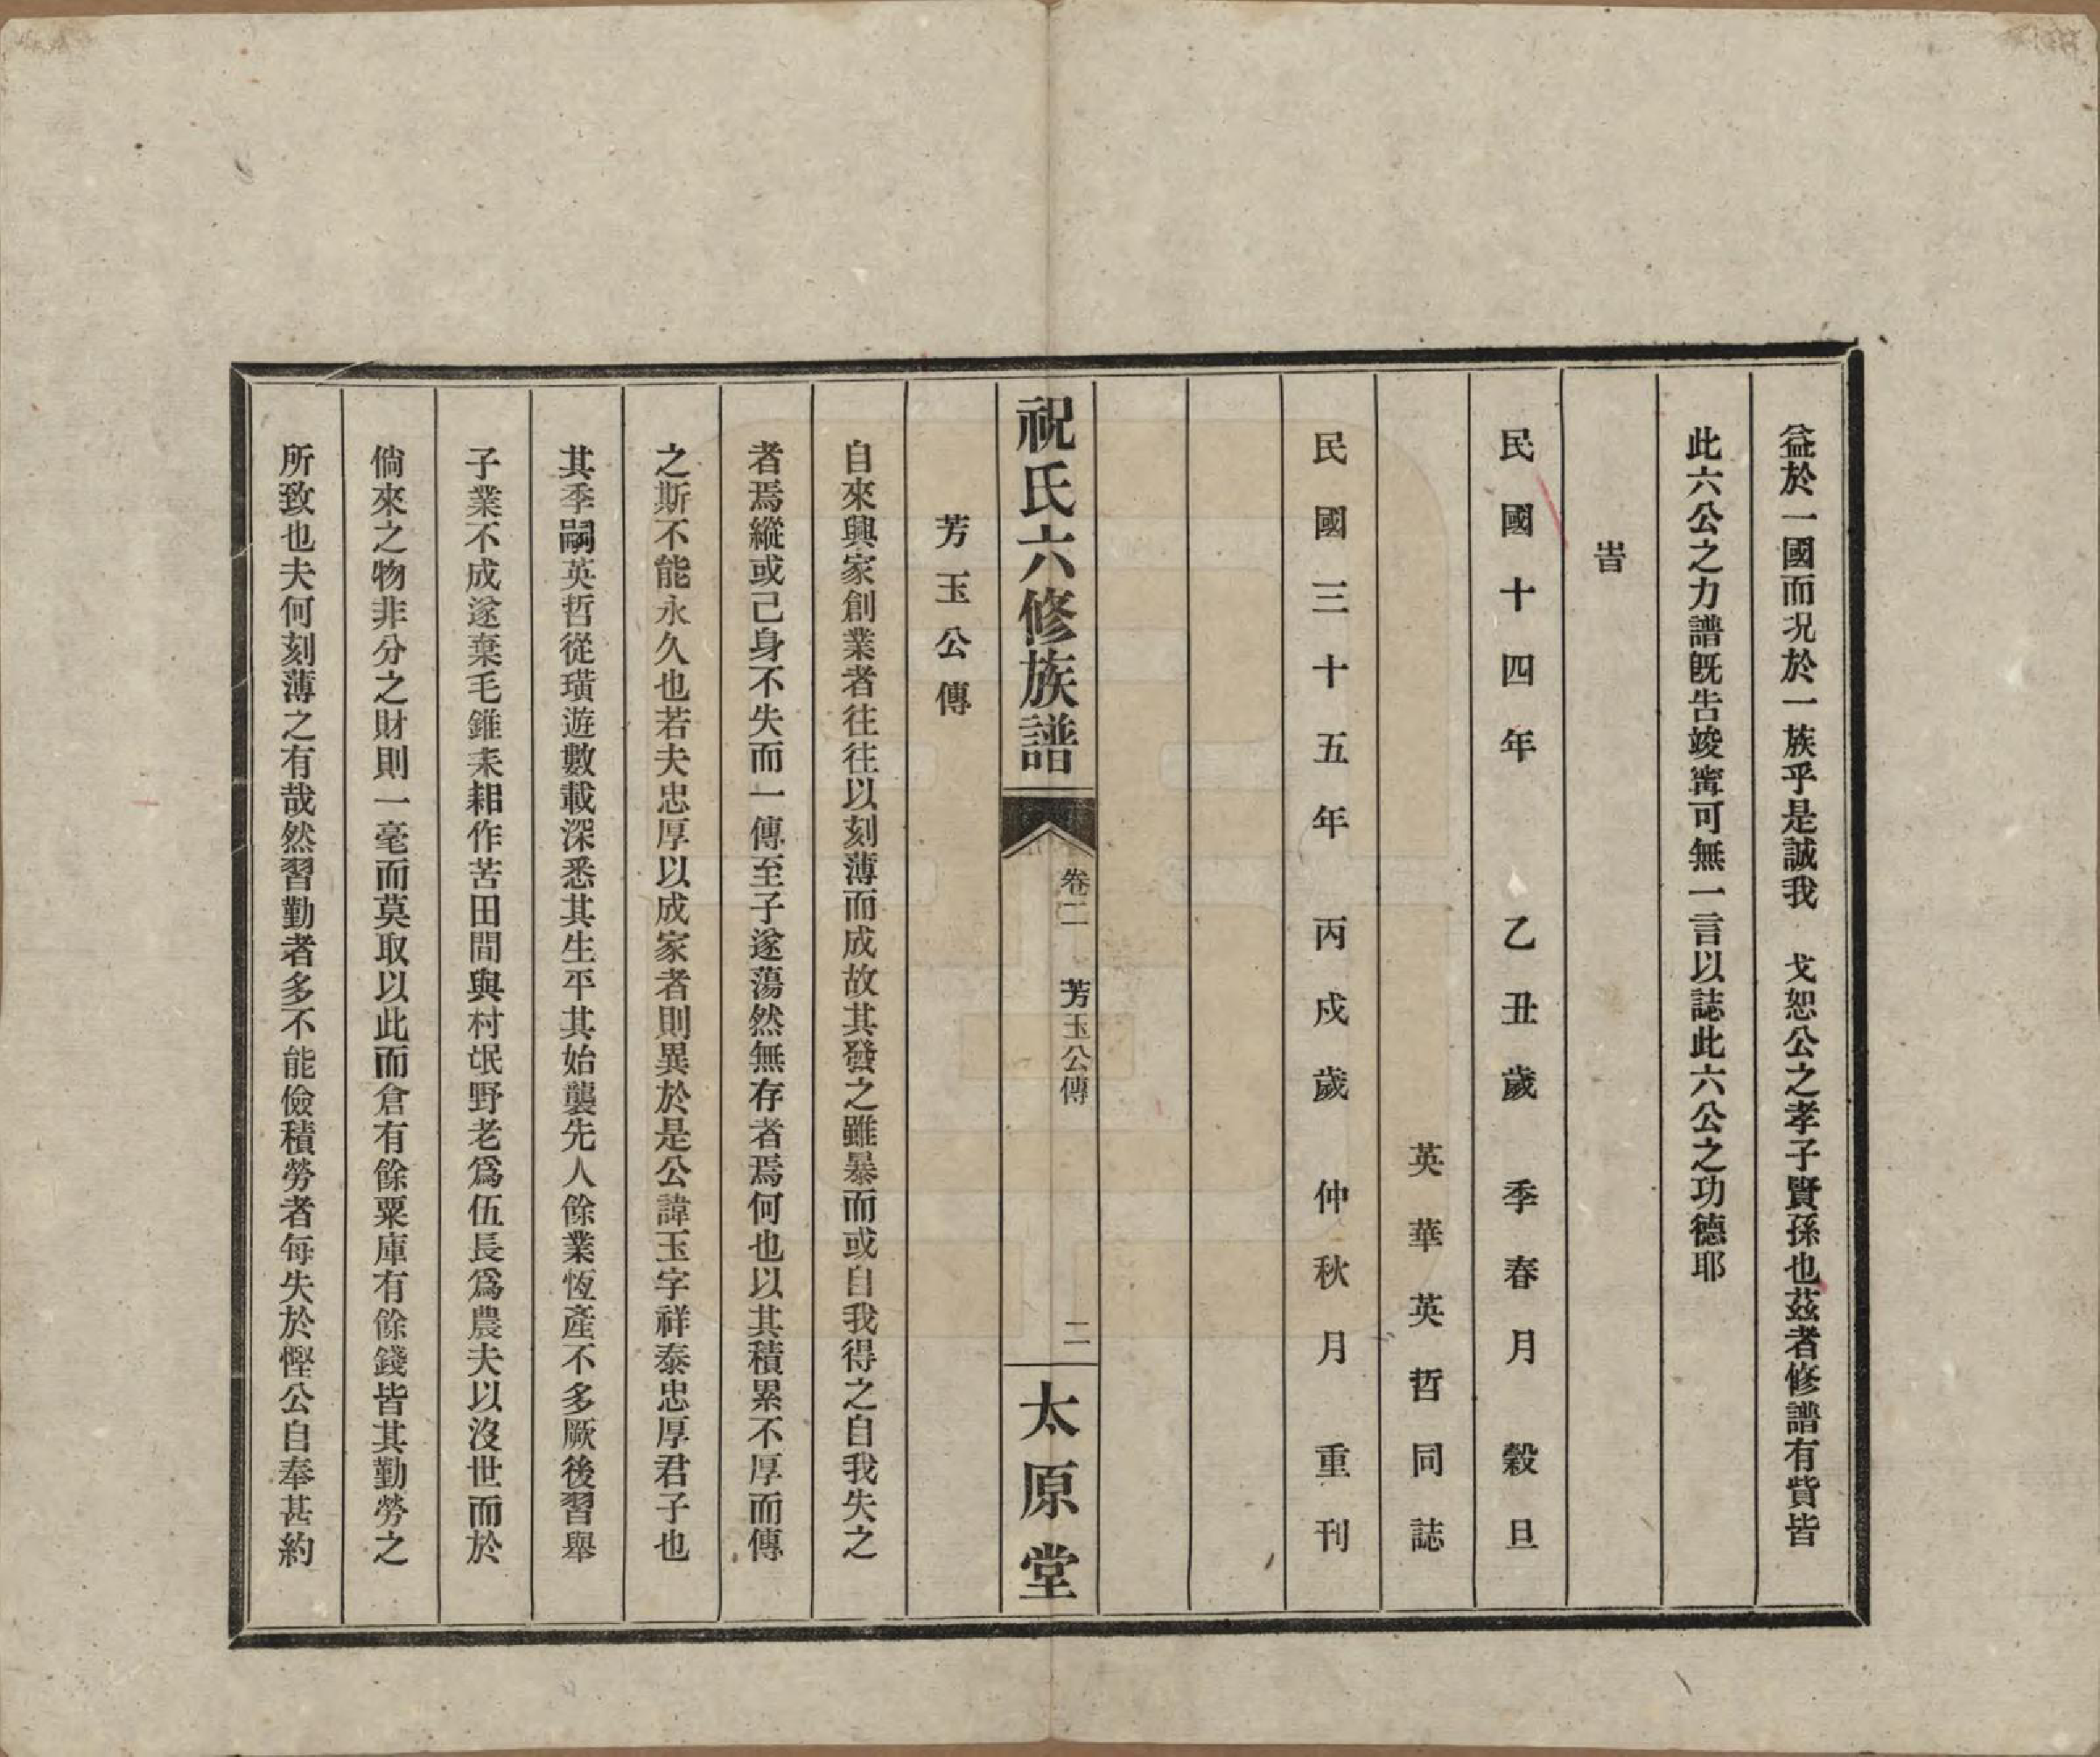 益於一國而況於一族乎是誠我　戈恕公之孝子賢孫也茲者修譜有貲皆
此六公之力譜旣告竣寗可無一言以誌此六公之功德耶
旹
民國十四年　乙丑歲　季春月　穀旦
英華英哲同誌
民國三十五年　丙戍歲　仲秋月　重刊
祝氏六修族譜　卷二　芳玉公傳　二　太原堂
芳玉公傳
自來興家創業者往往以刻薄而成故其發之雖暴而或自我得之自我失之
者焉縱或己身不失而一傳至子遂蕩然無存者焉何也以其積累不厚而傳
之斯不能永久也若夫忠厚以成家者則異於是公諱玉字祥泰忠厚君子也
其季嗣英哲從璜遊數載深悉其生平其始襲先人餘業恆產不多厥後習舉
子業不成遂棄毛錐耒耜作苦田間與村氓野老爲伍長爲農夫以沒世而於
倘來之物非分之財則一毫而莫取以此而倉有餘粟庫有餘錢皆其勤勞之
所致也夫何刻薄之有哉然習勤者多不能儉積勞者每失於慳公自奉甚約